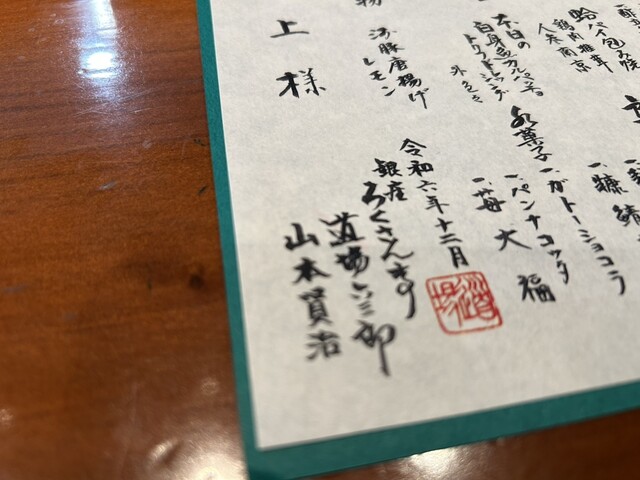 蛤パイ包み焼
鶏肉椎茸
人参南京
一、ガトーショコラ
一、パンナコッタ
一、苺大福
水菓子
本日の
白身魚カルパッチョ
トマトドレッシング
河豚唐揚げ
レモン
令和六年十二月
銀座ろくさん亭
道場六三郎
山本賢治
上様
道場